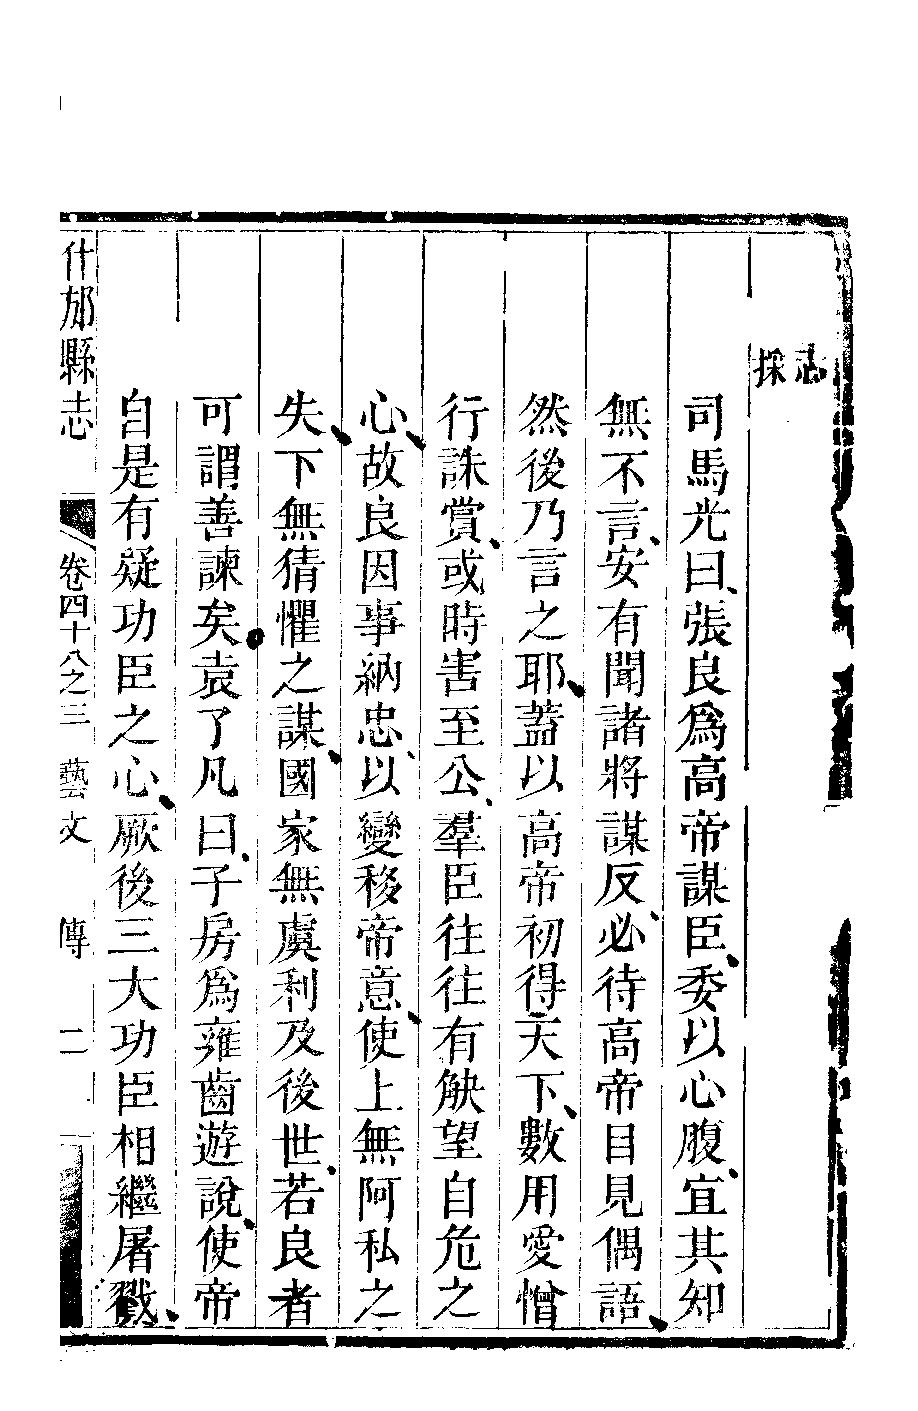 志
採
司馬光曰、張良爲高帝謀臣、委以心腹、宜其知
無不言、安有聞諸將謀反、必待高帝目見偶語、
然後乃言之耶、蓋以高帝初得天下、數用愛憎
行誅賞、或時害至公、羣臣往往有觖望自危之
心、故良因事納忠、以變移帝意、使上無阿私之
失、下無猜懼之謀、國家無虞利及後世、若良者
可謂善諫矣袁了凡曰、子房爲雍齒遊說、使帝
自是有疑功臣之心、厥後三大功臣相繼屠戮、
什邡縣志 卷四十八之三 藝文 傳 二